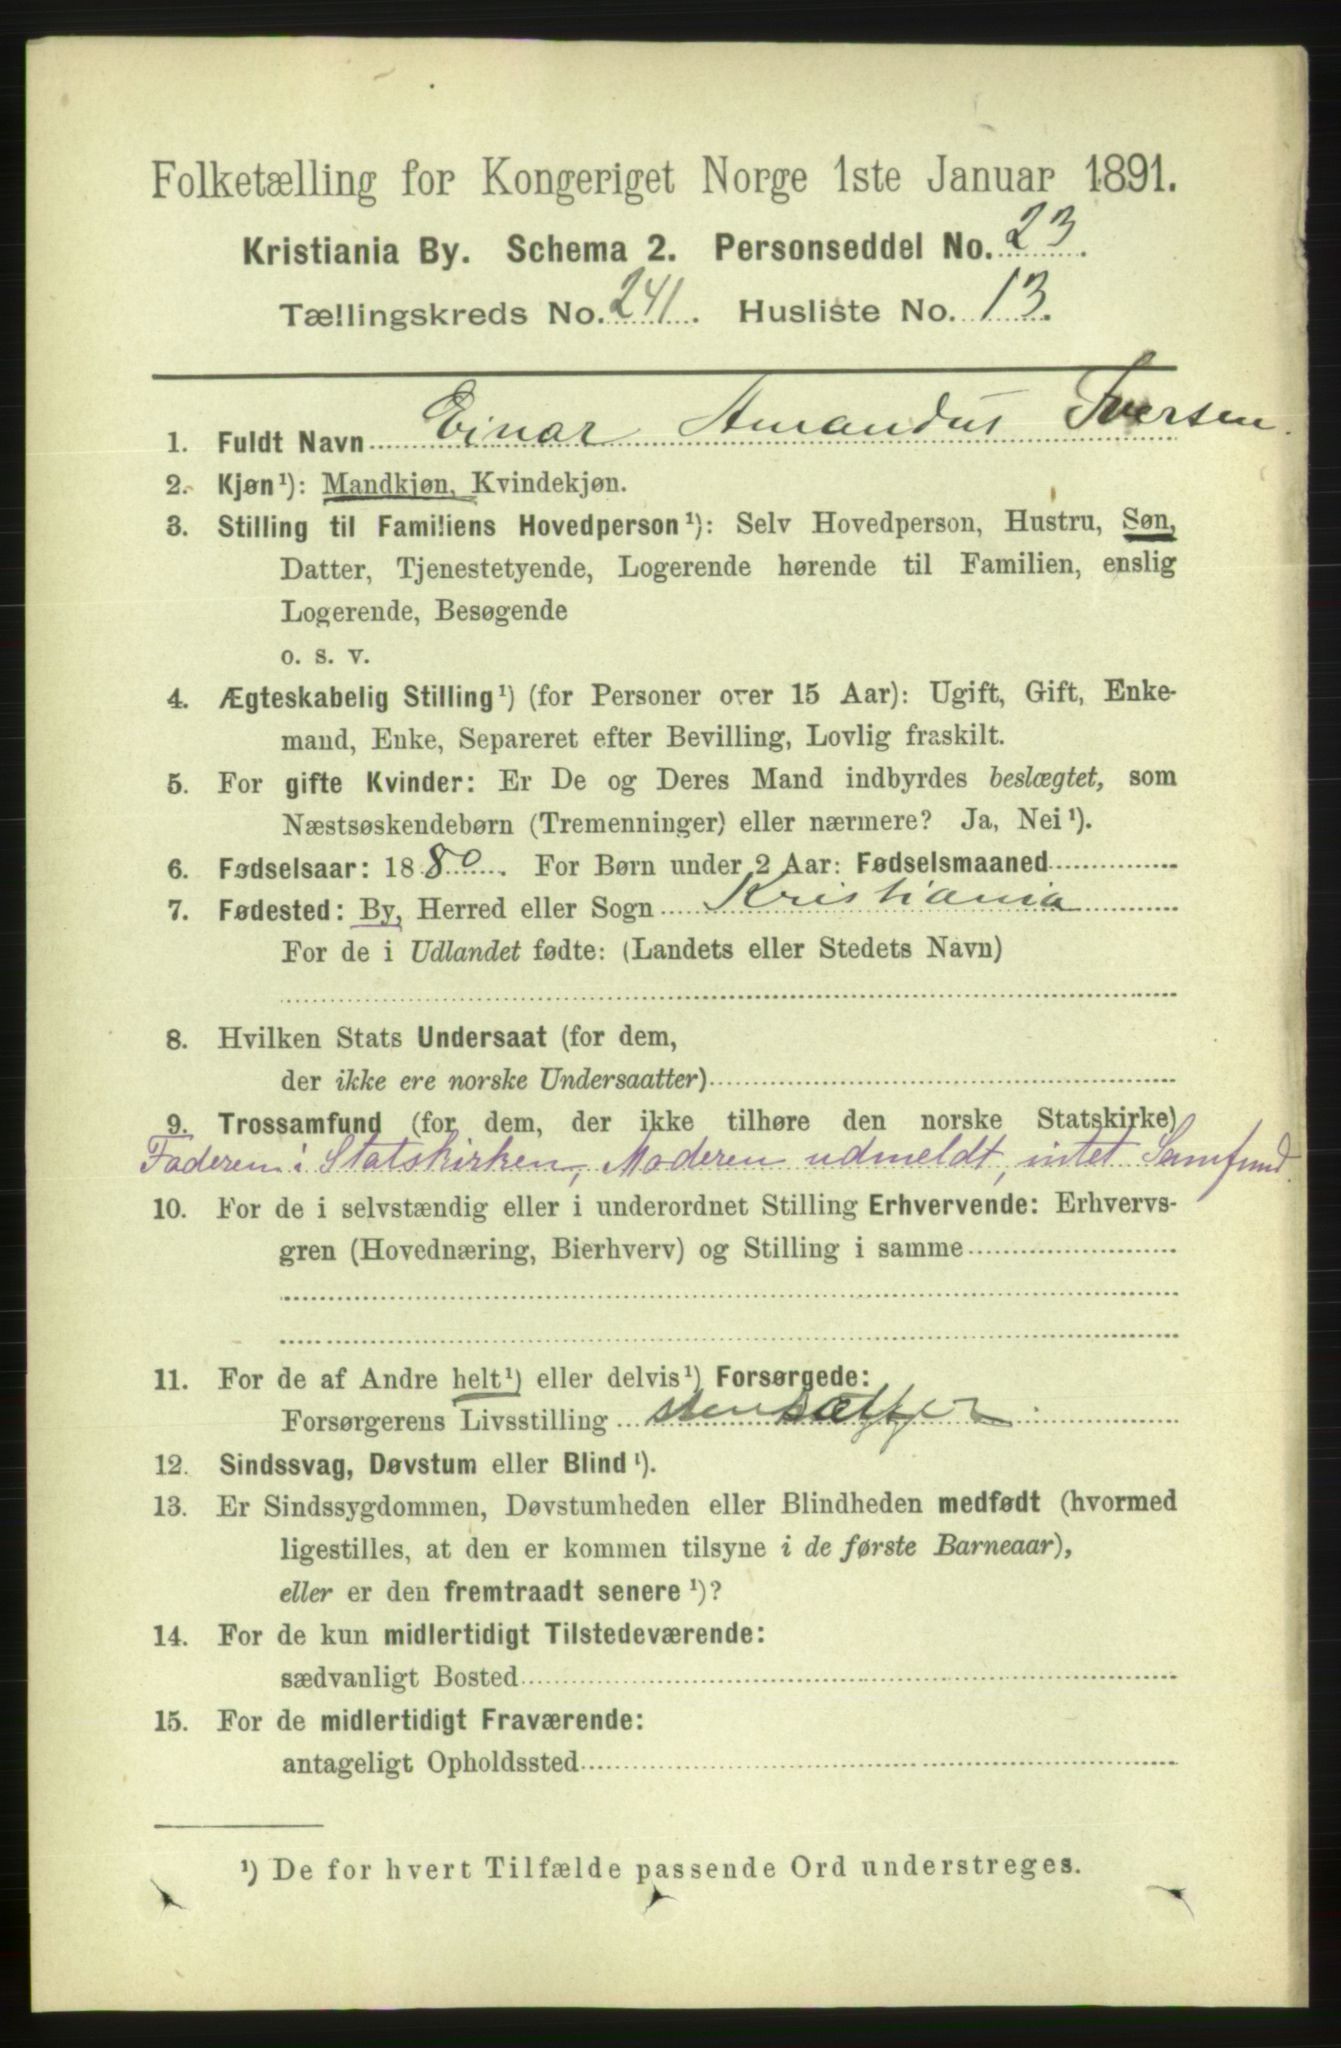 Folketælling for Kongeriget Norge 1ste Januar 1891.
Kristiania By. Schema 2. Personseddel No. 23.
Tællingskreds No. 241. Husliste No. 13.
1. Fuldt Navn Einar Amandus Iversen.
2. Kjøn¹): Mandkjøn, Kvindekjøn.
3. Stilling til Familiens Hovedperson¹): Selv Hovedperson, Hustru, Søn,
Datter, Tjenestetyende, Logerende hørende til Familien, enslig
Logerende, Besøgende
o. s. v.
4. Ægteskabelig Stilling¹) (for Personer over 15 Aar): Ugift, Gift, Enke-
mand, Enke, Separeret efter Bevilling, Lovlig fraskilt.
5. For gifte Kvinder: Er De og Deres Mand indbyrdes beslægtet, som
Næstsøskendebørn (Tremenninger) eller nærmere? Ja, Nei¹).
6. Fødselsaar: 1880. For Børn under 2 Aar: Fødselsmaaned
7. Fødested: By, Herred eller Sogn Kristiania
For de i Udlandet fødte: (Landets eller Stedets Navn)
8. Hvilken Stats Undersaat (for dem,
der ikke ere norske Undersaatter)
9. Trossamfund (for dem, der ikke tilhøre den norske Statskirke)
Faderen i Statskirken, Moderen udmeldt, intet Samfund.
10. For de i selvstændig eller i underordnet Stilling Erhvervende: Erhvervs-
gren (Hovednæring, Bierhverv) og Stilling i samme
11. For de af Andre helt¹) eller delvis¹) Forsørgede:
Forsørgerens Livsstilling stensætter
12. Sindssvag, Døvstum eller Blind¹).
13. Er Sindssygdommen, Døvstumheden eller Blindheden medfødt (hvormed
ligestilles, at den er kommen tilsyne i de første Barneaar),
eller er den fremtraadt senere¹)?
14. For de kun midlertidigt Tilstedeværende:
sædvanligt Bosted
15. For de midlertidigt Fraværende:
antageligt Opholdssted
¹) De for hvert Tilfælde passende Ord understreges.